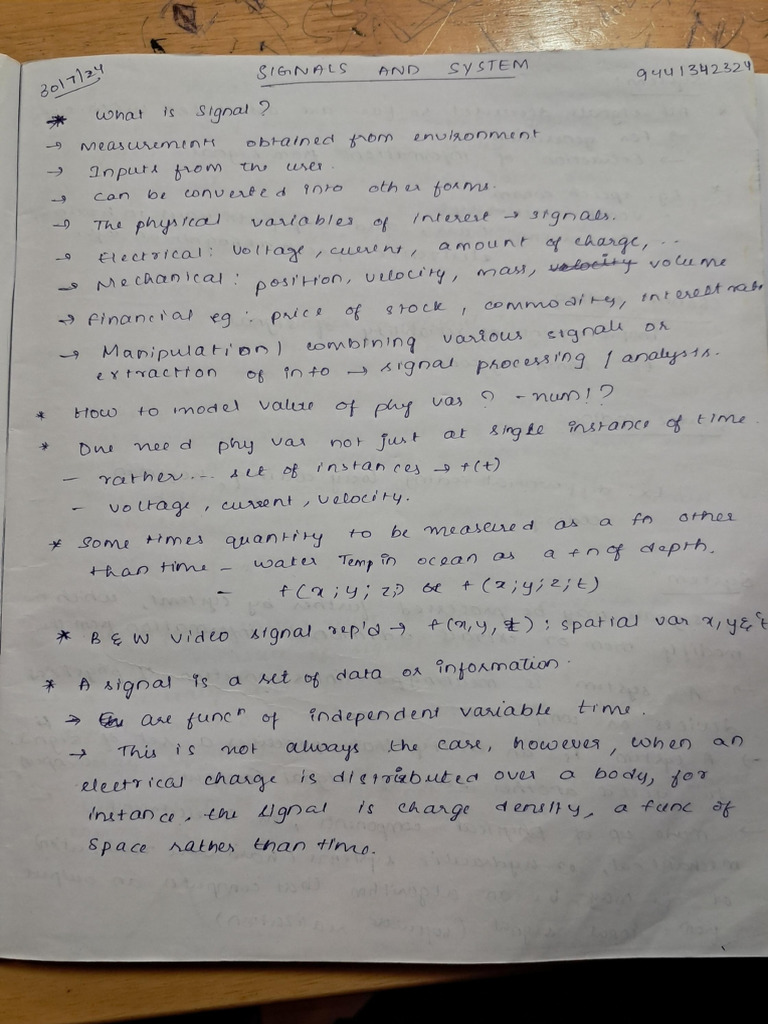 30/7/24 SIGNALS AND SYSTEM 9441342324
* What is signal?
→ Measurements obtained from environment
→ Inputs from the user.
→ can be converted into other forms.
→ The physical variables of interest → signals.
→ Electrical: voltage, current, amount of charge, ..
→ Mechanical: position, velocity, mass, velocity volume
→ financial eg: price of stock, commodity, interest rate
→ Manipulation / combining various signals or
extraction of info → signal processing / analysis.
* How to model value of phy var? - num!?
* One need phy var not just at single instance of time.
- rather... set of instances → f(t)
- voltage, current, velocity.
* Some times quantity to be measured as a fn other
than time - water Temp in ocean as a fn of depth.
- f(x; y; z;) or f(x; y; z; t)
* B & W video signal rep'd → f(x, y, t): spatial var x, y & t
* A signal is a set of data or information.
→ are funcⁿ of independent variable time.
→ This is not always the case, however, when an
electrical charge is distributed over a body, for
instance, the signal is charge density, a func of
space rather than time.